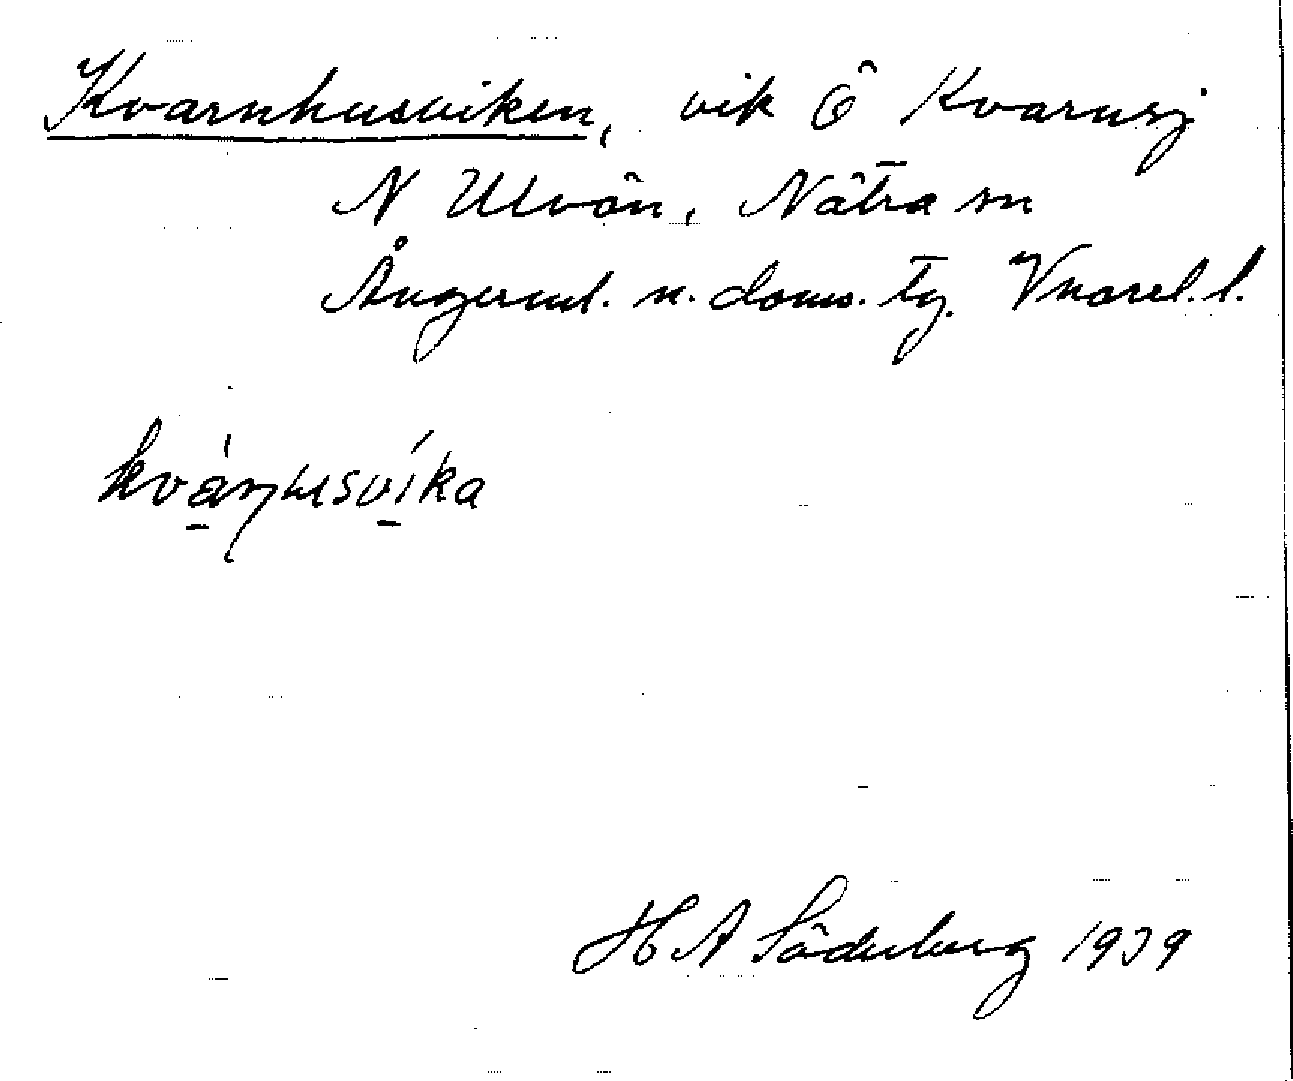 Kvarnhusviken, vik Ö Kvarnsj
N Ulvön, Nätra sn
Ångerml. n. doms. tg. Vnorrl. l.
kvárnusvíka
H A Söderberg 1939